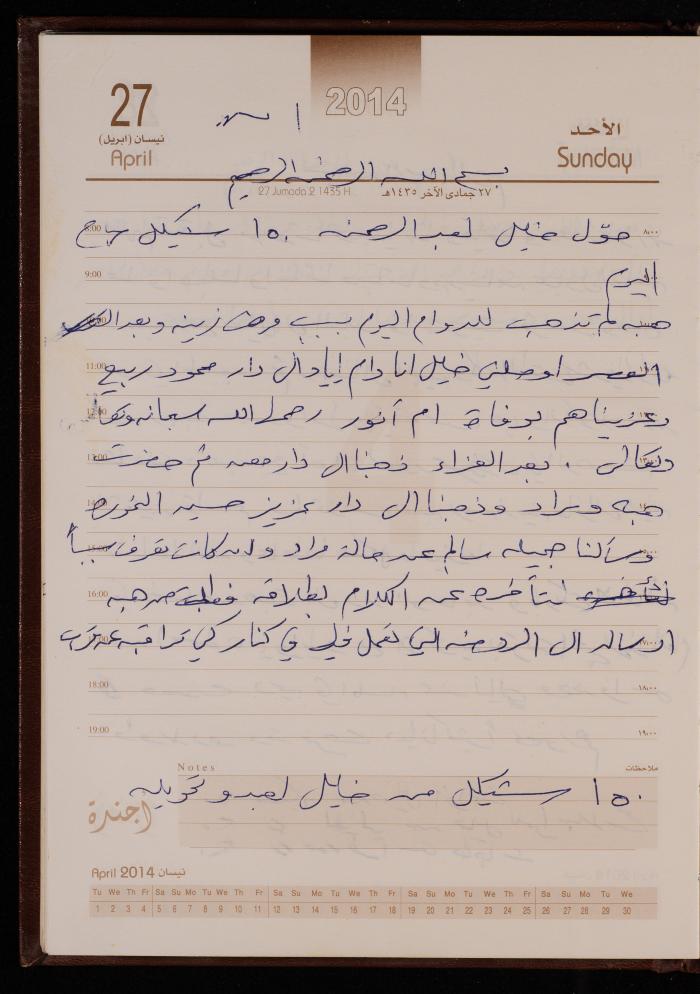 27
نيسان (ابريل)
April
2014
الأحد
Sunday
بسم الله الرحمن الرحيم
27 Jumada 2 1435 H
٢٧ جمادى الآخر ١٤٣٥هـ
8:00 حوّل خليل لعبد الرحمن ١٥٠ شيكل ٨:٠٠
9:00 اليوم
هبه لم تذهب للدوام اليوم بسبب فرح زينه وبعد
11:00 العصر اوصلني خليل انا وام إياد ال دار محمود ربيع
وعزيناهم بوفاة ام أنور رحمها الله سبحانه
وتعالى . بعد العزاء ذهبنا ال دار ثم حضرت
هبه ومراد وذهبنا ال دار عزيز حسين
وسألنا جميله سالم عن حالة مراد وان كانت تعرف سبباً
16:00 لتأخره عن الكلام بطلاقه هبه
ارساله ال الروضه التي تعمل في
18:00 ١٨:٠٠
19:00 ١٩:٠٠
Notes ملاحظات
١٥٠ شيكل من خليل لعبد وتحويله
اجندة
April 2014 نيسان
Tu We Th Fr Sa Su Mo Tu We Th Fr Sa Su Mo Tu We Th Fr Sa Su Mo Tu We Th Fr Sa Su Mo Tu We
1 2 3 4 5 6 7 8 9 10 11 12 13 14 15 16 17 18 19 20 21 22 23 24 25 26 27 28 29 30